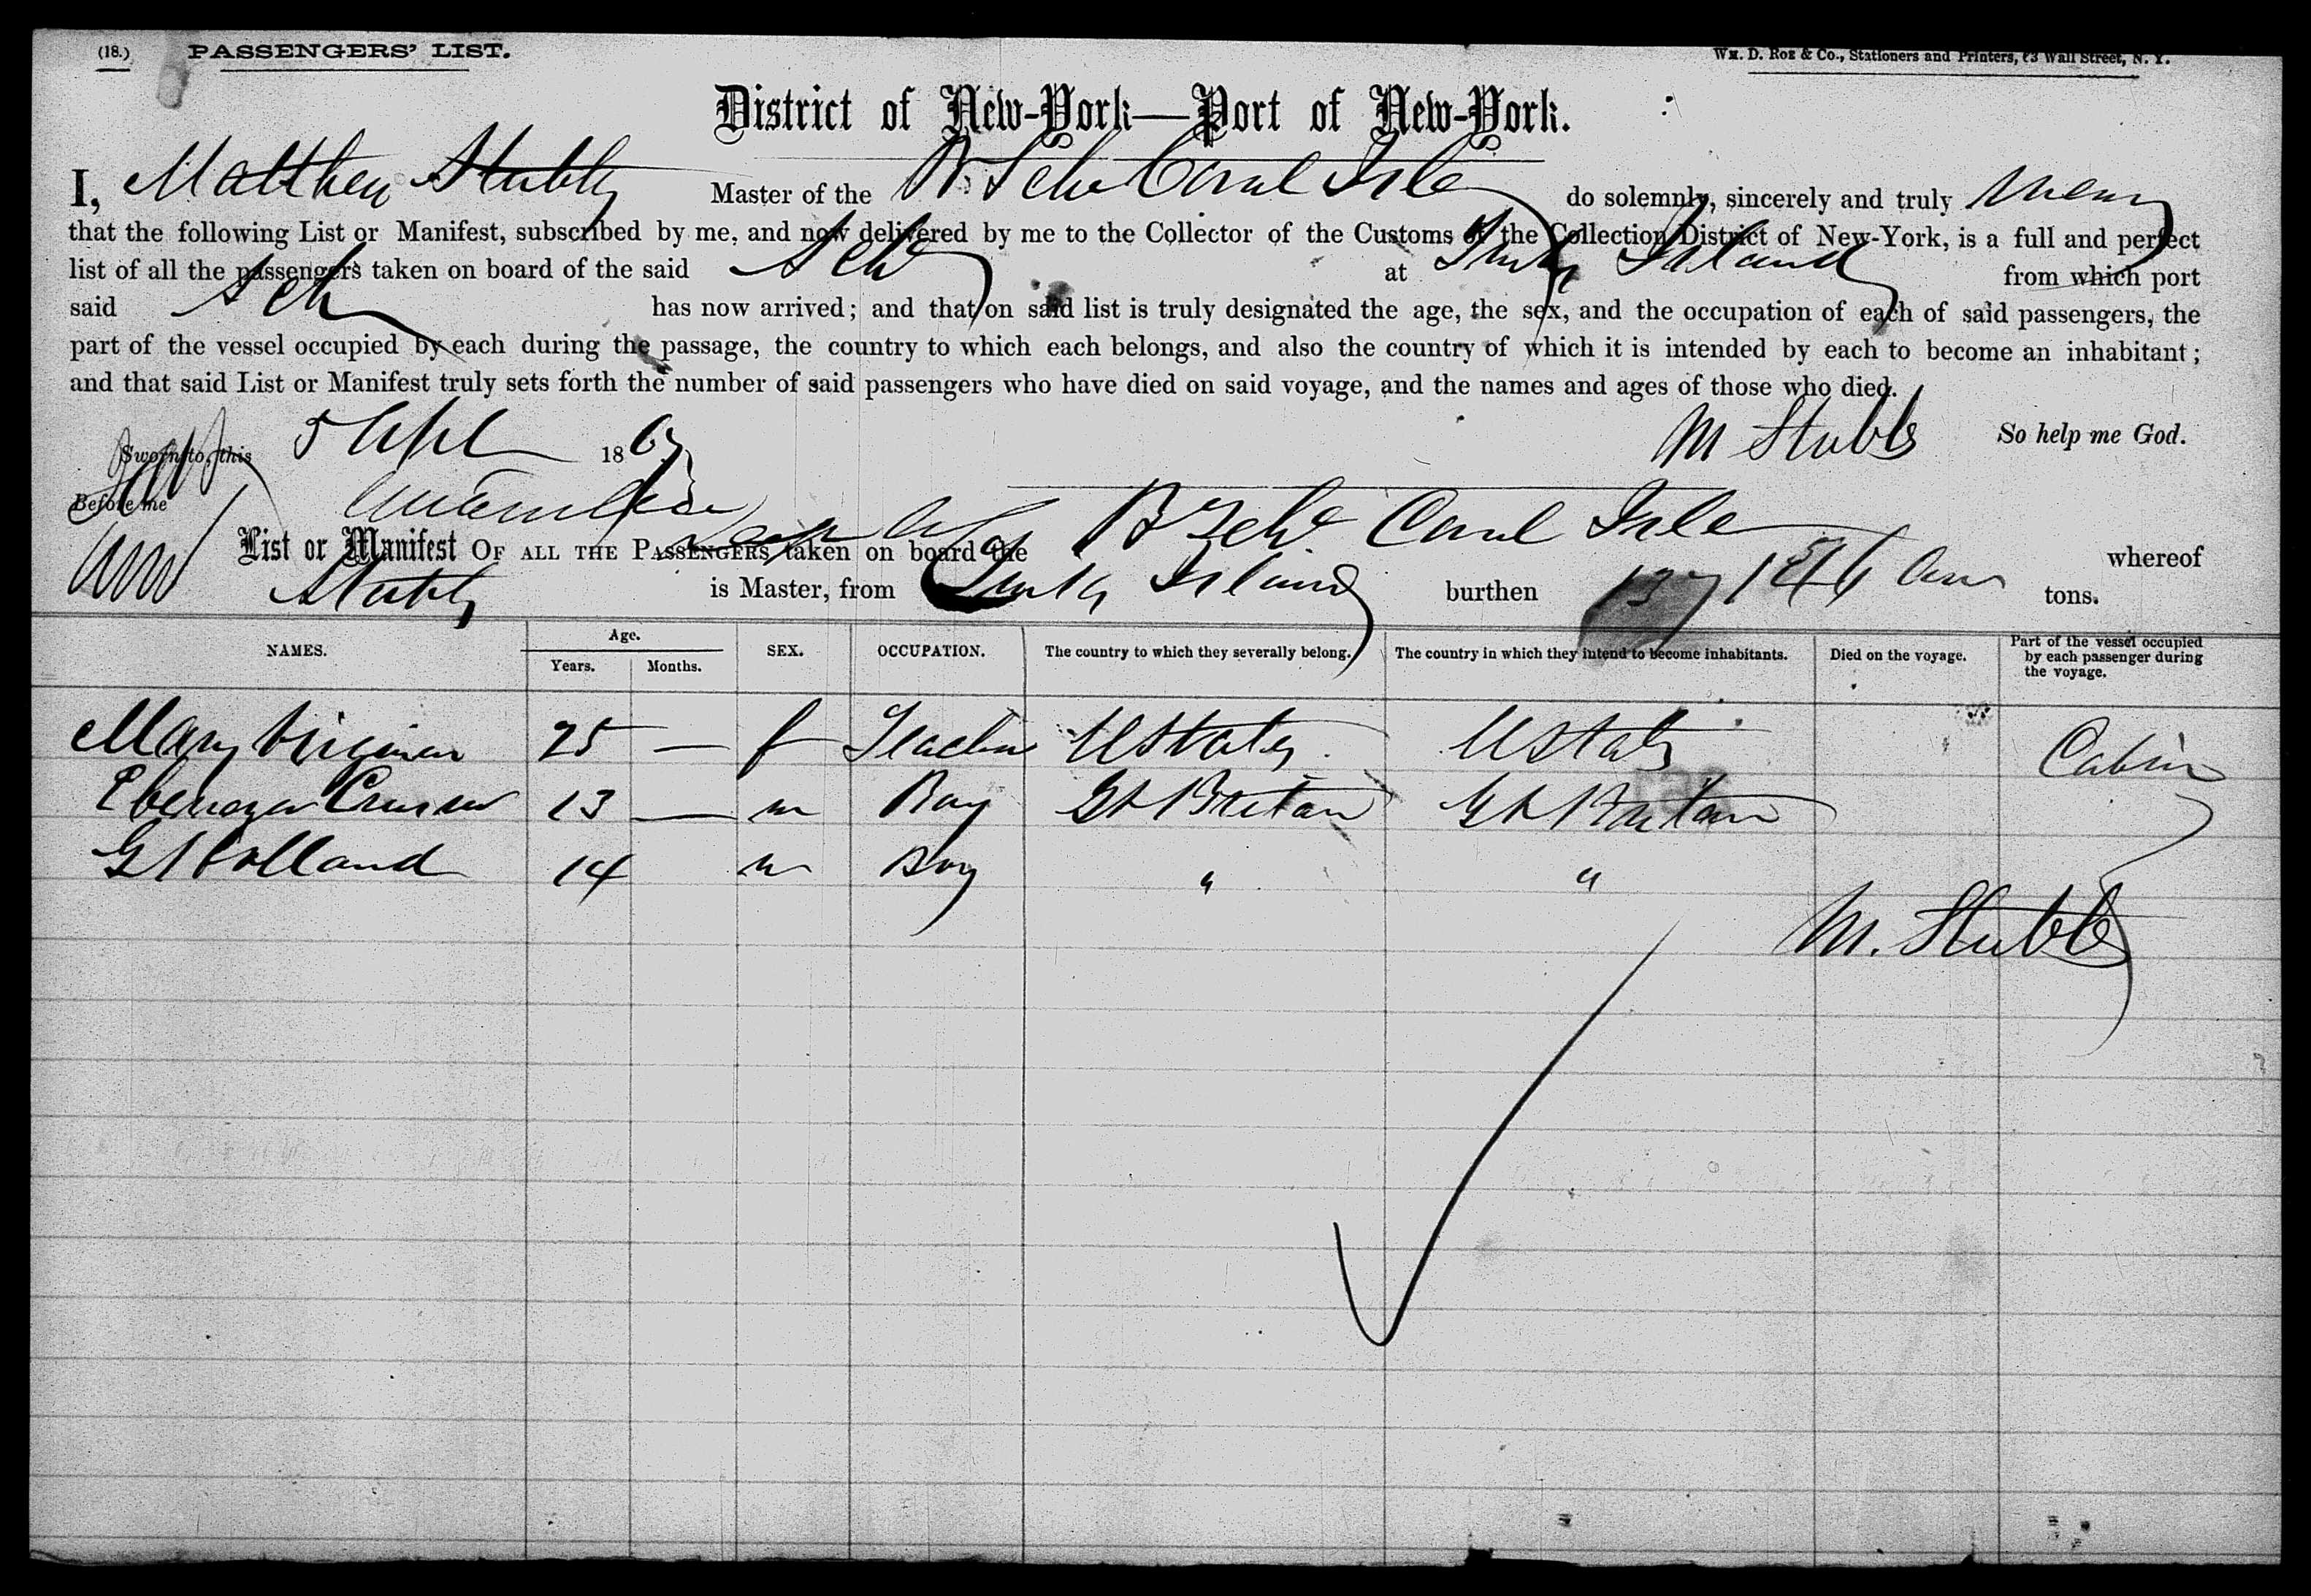 (18.) PASSENGERS' LIST.
WM. D. ROE & Co., Stationers and Printers, 63 Wall Street, N. Y.
District of New-York—Port of New-York.
I, Matthew Stubbs Master of the Br Schr Coral Isle do solemnly, sincerely and truly swear
that the following List or Manifest, subscribed by me, and now delivered by me to the Collector of the Customs of the Collection District of New-York, is a full and perfect
list of all the passengers taken on board of the said Schr at Turks Island from which port
said Schr has now arrived; and that on said list is truly designated the age, the sex, and the occupation of each of said passengers, the
part of the vessel occupied by each during the passage, the country to which each belongs, and also the country of which it is intended by each to become an inhabitant;
and that said List or Manifest truly sets forth the number of said passengers who have died on said voyage, and the names and ages of those who died.
Sworn to, this 5 Apl 1867 M Stubbs So help me God.
Before me
List or Manifest OF ALL THE PASSENGERS taken on board the B Schr Coral Isle whereof
Stubbs is Master, from Turks Island burthen 137 tons.
NAMES. Age. Years. Months. SEX. OCCUPATION. The country to which they severally belong. The country in which they intend to become inhabitants. Died on the voyage. Part of the vessel occupied by each passenger during the voyage.
Mary 25 — f Teacher UStates UStates Cabin
Ebenezer 13 — m Boy Gt Britain Gt Britain
G Holland 14 m Boy " "
M. Stubbs